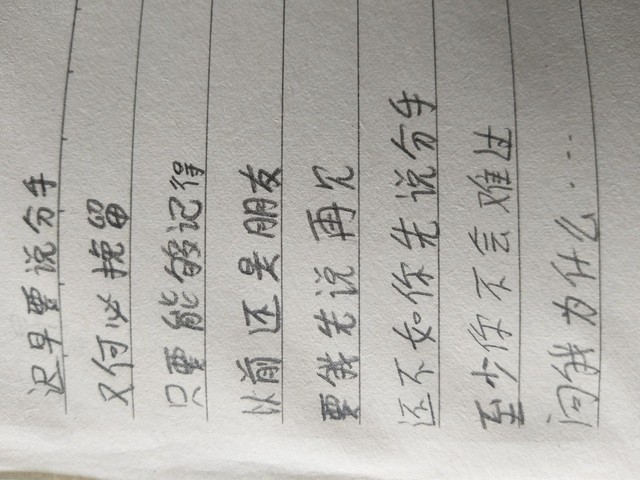 迟早要说分手
又何必挽留
只要能够记得
以前还是朋友
要我先说再见
还不如你先说分手
至少你不会难过
问我为什么....